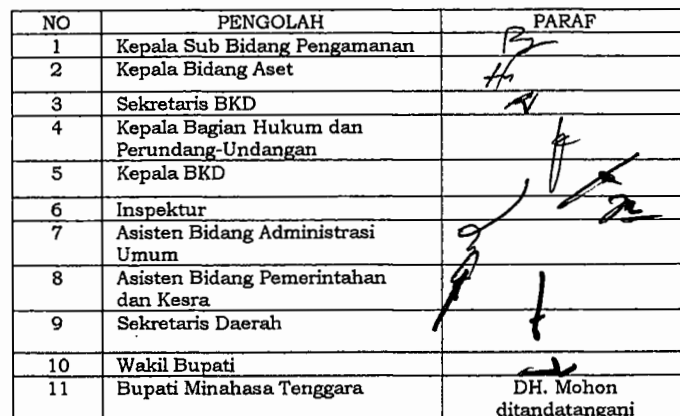 NO PENGOLAH PARAF
1 Kepala Sub Bidang Pengamanan
2 Kepala Bidang Aset
3 Sekretaris BKD
4 Kepala Bagian Hukum dan
Perundang-Undangan
5 Kepala BKD
6 Inspektur
7 Asisten Bidang Administrasi
Umum
8 Asisten Bidang Pemerintahan
dan Kesra
9 Sekretaris Daerah
10 Wakil Bupati
11 Bupati Minahasa Tenggara DH. Mohon
ditandatangani